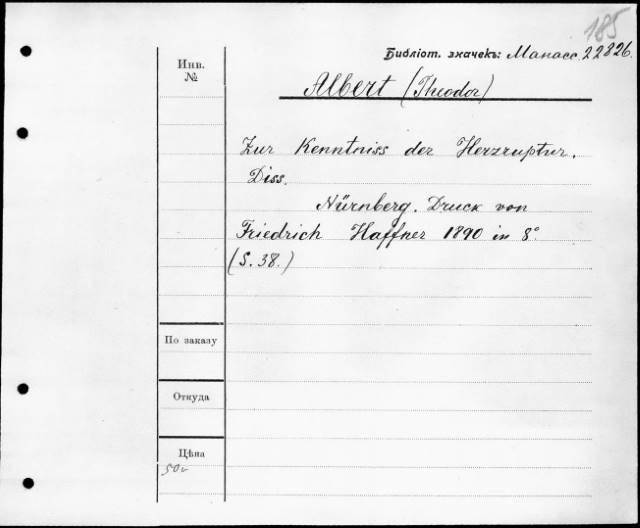 185
Библіот. значекъ: Манасс. 22826.
Инв. №
Albert (Theodor)
Zur Kenntniss der Herzruptur.
Diss.
Nürnberg. Druck von
Friedrich Haffner 1890 in 8°
(S. 38.)
По заказу
Откуда
Цѣна